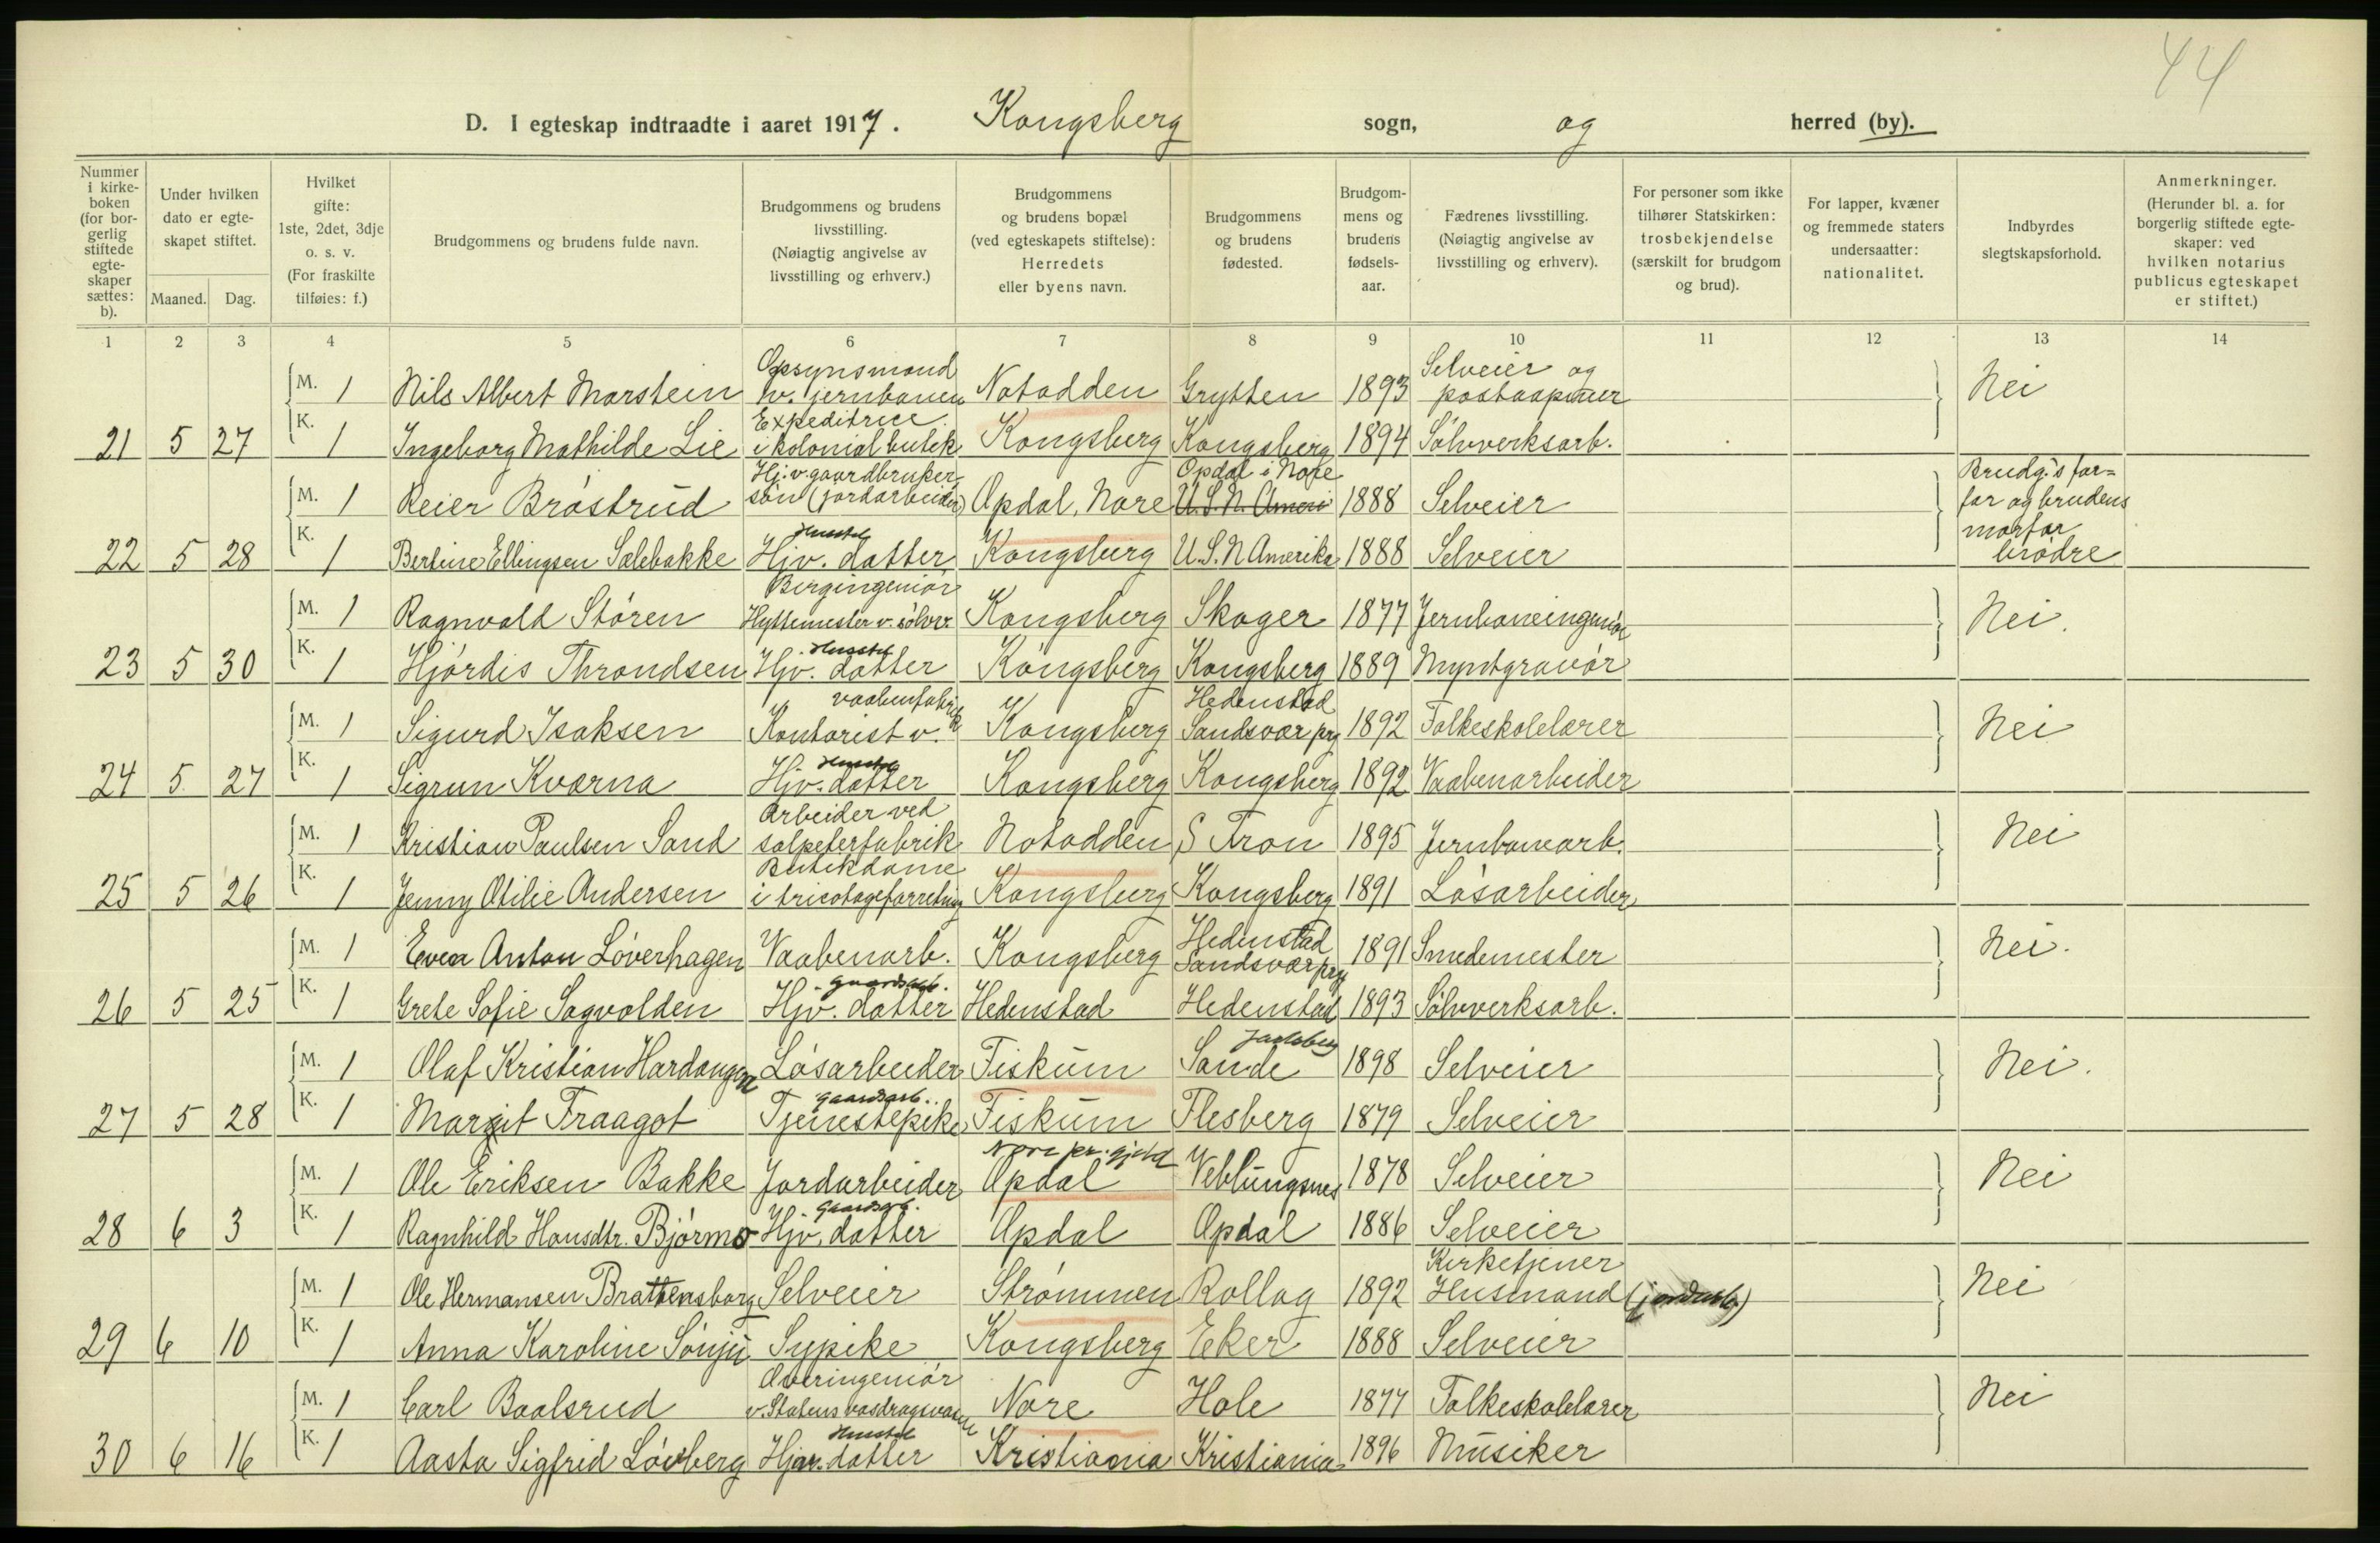 44
D. I egteskap indtraadte i aaret 1917. Kongsberg sogn, og herred (by).
Nummer i kirkeboken (for borgerlig stiftede egteskaper sættes: b).
Under hvilken dato er egteskapet stiftet.
Maaned. Dag.
Hvilket gifte: 1ste, 2det, 3dje o. s. v. (For fraskilte tilføies: f.)
Brudgommens og brudens fulde navn.
Brudgommens og brudens livsstilling. (Nøiagtig angivelse av livsstilling og erhverv.)
Brudgommens og brudens bopæl (ved egteskapets stiftelse): Herredets eller byens navn.
Brudgommens og brudens fødested.
Brudgommens og brudens fødselsaar.
Fædrenes livsstilling. (Nøiagtig angivelse av livsstilling og erhverv).
For personer som ikke tilhører Statskirken: trosbekjendelse (særskilt for brudgom og brud).
For lapper, kvæner og fremmede staters undersaatter: nationalitet.
Indbyrdes slegtskapsforhold.
Anmerkninger. (Herunder bl. a. for borgerlig stiftede egteskaper: ved hvilken notarius publicus egteskapet er stiftet.)
1 2 3 4 5 6 7 8 9 10 11 12 13 14
M. 1 Nils Albert Marstein Opsynsmand v. jernbanen Notodden Grytten 1893 Selveier og postaapner Nei
21 5 27 K. 1 Ingeborg Mathilde Lie Expeditrice i kolonialbutik Kongsberg Kongsberg 1894 Sølvverksarb.
M. 1 Reier Bråstrud Hj. v. gaardbruker søn (jordarbeider) Opdal, Nore Opdal i Nore U.S.N. Ameri 1888 Selveier Brudg's farfar og brudens morfar brødre
22 5 28 K. 1 Bertine Ellingsen Sælebakke Hjv. datter Husstel Kongsberg U.S.N Amerika 1888 Selveier
M. 1 Ragnvald Støren Bergingeniør Hyttemester v. sølvv. Kongsberg Skoger 1877 Jernbaneingeniør Nei.
23 5 30 K. 1 Hjørdis Throndsen Hjv. datter Husstel Kongsberg Kongsberg 1889 Myntgravør
M. 1 Sigurd Isaksen Kontorist v. vaabenfabrik Kongsberg Hedenstad Sandsvær prg 1892 Folkeskolelærer Nei
24 5 27 K. 1 Sigrun Kværna Hjv. datter Husstel Kongsberg Kongsberg 1892 Vaabenarbeider
M. 1 Kristian Paulsen Sand Arbeider ved salpeterfabrik Notodden S Fron 1895 Jernbanearb. Nei
25 5 26 K. 1 Jenny Otilie Andersen Butikdame i tricotageforretning Kongsberg Kongsberg 1891 Løsarbeider
M. 1 Even Anton Løverhagen Vaabenarb. Kongsberg Hedenstad Sandsvær prgj 1891 Smedemester Nei.
26 5 25 K. 1 Grete Sofie Sagvolden Hjv. datter gaardsarb. Hedenstad Hedenstad 1893 Sølvverksarb.
M. 1 Olaf Kristian Hardangen Løsarbeider Fiskum Sande Jarlsberg 1898 Selveier Nei.
27 5 28 K. 1 Margit Fraagot Tjenestepike gaardsarb. Fiskum Flesberg 1879 Selveier
M. 1 Ole Eriksen Bakke Jordarbeider Nore pr.gjeld Opdal Veblungsnes 1878 Selveier Nei
28 6 3 K. 1 Ragnhild Hansdtr. Bjørmo Hjv. datter Gaardsarb. Opdal Opdal 1886 Selveier
M. 1 Ole Hermansen Brattensborg Selveier Strømmen Rollag 1892 Kirketjener Husmand (jordarb) Nei
29 6 10 K. 1 Anna Karoline Sønju Sypike Kongsberg Eker 1888 Selveier
M. 1 Carl Baalsrud Overingeniør v. Statens vasdragsvæsen Nore Hole 1877 Folkeskolelærer Nei
30 6 16 K. 1 Aasta Sigfrid Løvberg Hjv. datter Husstel Kristiania Kristiania 1896 Musiker